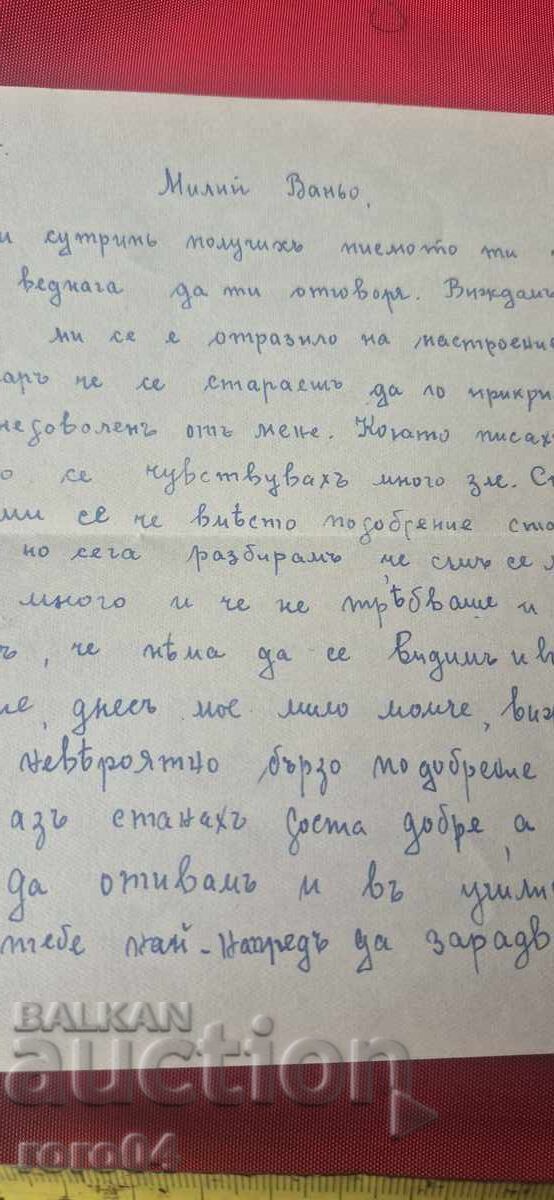 Милий Ваньо,
и сутринь получихъ писмото ти
веднага да ти отговоря. Виждамъ
ми се е отразило на настроение
аръ че се стараешъ да го прикри
недоволенъ отъ мене. Когато писахъ
о се чувствувахъ много зле. Ст
ми се че вмѣсто подобрение ста
но сега разбирамъ че съмъ се
много и че не трѣбваше и
ъ, че нѣма да се видимъ и в
ие, днесъ мое мило момче, виж
невѣроятно бързо подобрение
азъ станахъ доста добре, а
да отивамъ и въ учили
тебе най-напредъ да зарадв
BALKAN
auction
roro04